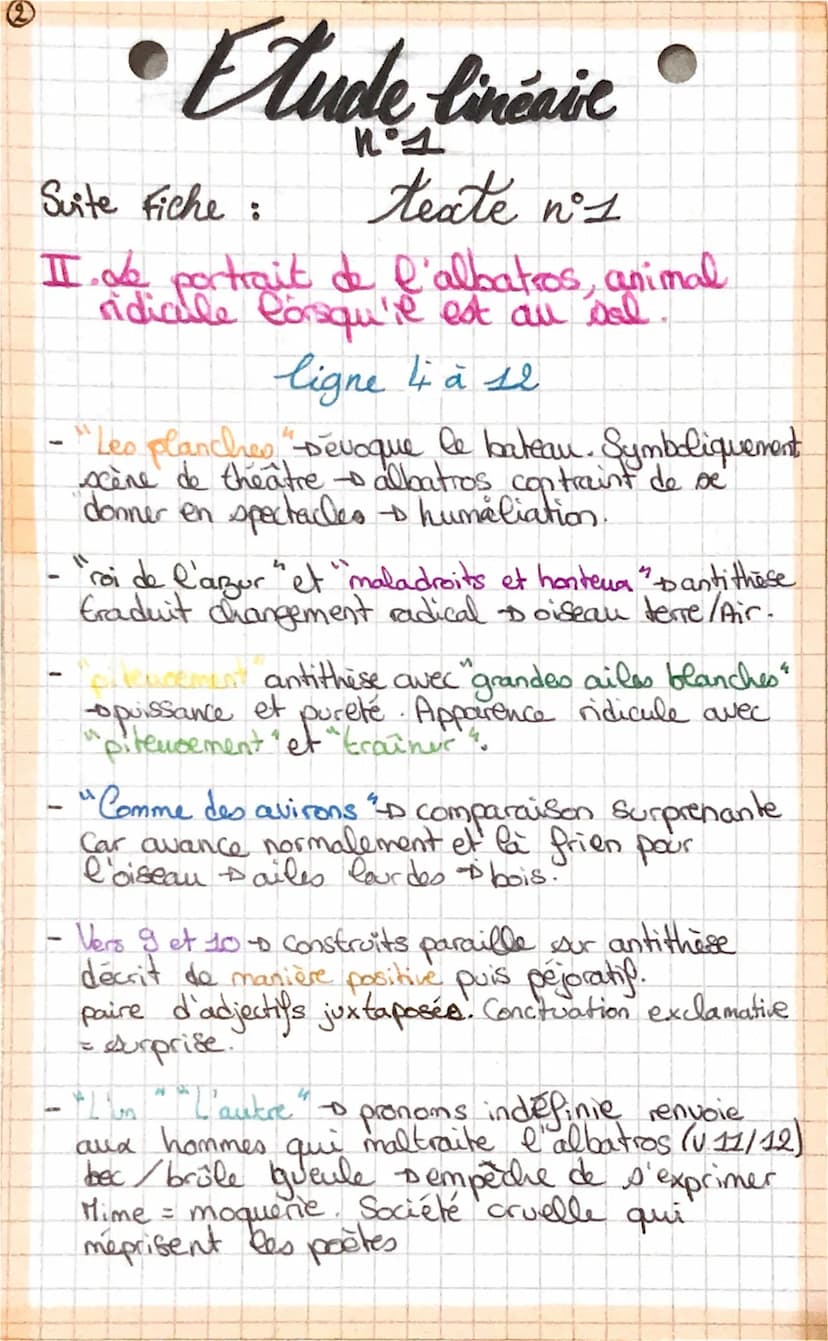 2
Etude linéaire
n°1
Suite Fiche : texte n°1
II. Le portrait de l'albatros, animal
ridicule lorsqu'il est au sol.
ligne 4 à 12
- "Les planches" → évoque le bateau. Symboliquement
scène de théâtre → albatros contraint de se
donner en spectacles → humåliation.
- "roi de l'azur" et "maladroits et honteux" → antithèse
traduit changement radical → oiseau terre/Air.
- "piteusement" antithèse avec "grandes ailes blanches"
→ puissance et pureté. Apparence ridicule avec
"piteusement" et "traîner".
- "Comme des avirons" → comparaison surprenante
car avance normalement et là frien pour
l'oiseau → ailes lourdes → bois.
- Vers 9 et 10 → construits paraille sur antithèse
décrit de manière positive puis péjoratif.
paire d'adjectifs juxtaposée. Conctuation exclamative
= surprise.
- "L'un" "L'autre" → pronoms indéfinie renvoie
aux hommes qui maltraite l'albatros (v 11/12)
bec / brûle gueule → empêche de s'exprimer
Mime = moquerie. Société cruelle qui
méprisent les poètes